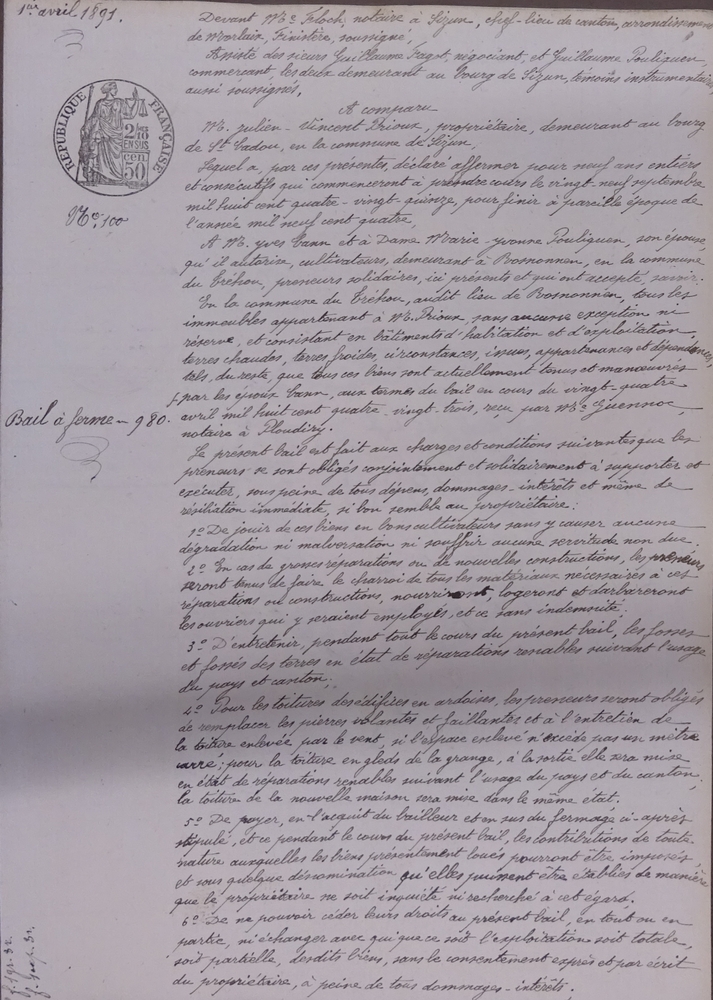 1er avril 1891.
RÉPUBLIQUE FRANÇAISE
2/10 EN SUS
CEN. 50
No 100
Bail à ferme - 980.
Devant Me Floch, notaire à Sizun, chef-lieu de canton, arrondissement
de Morlaix, Finistère, soussigné,
Assisté des sieurs Guillaume Fagot, négociant, et Guillaume Pouliquen,
commerçant, les deux demeurant au bourg de Sizun, témoins instrumentaires
aussi soussignés,
A comparu
M. Julien-Vincent Prioux, propriétaire, demeurant au bourg
de St Cadou, en la commune de Sizun,
Lequel a, par ces présentes, déclaré affermer pour neuf ans entiers
et consécutifs qui commenceront à prendre cours le vingt-neuf septembre
mil huit cent quatre-vingt-quinze, pour finir à pareille époque de
l'année mil neuf cent quatre,
A M. Yves Cann et à Dame Marie-Yvonne Pouliquen, son épouse,
qu'il autorise, cultivateurs, demeurant à Rosnonnen, en la commune
du Tréhou, preneurs solidaires, ici présents et qui ont accepté, savoir:
En la commune du Tréhou, audit lieu de Rosnonnen, tous les
immeubles appartenant à M. Prioux, sans aucune exception ni
réserve, et consistant en bâtiments d'habitation et d'exploitation,
terres chaudes, terres froides, circonstances, issues, appartenances et dépendances,
tels, du reste, que tous ces biens sont actuellement tenus et manœuvrés
par les époux Cann, aux termes du bail en cours du vingt-quatre
avril mil huit cent quatre-vingt-trois, reçu par Me Guennoc,
notaire à Ploudiry.
Le présent bail est fait aux charges et conditions suivantes que les
preneurs se sont obligés conjointement et solidairement à supporter et
exécuter, sous peine de tous dépens, dommages-intérêts et même de
résiliation immédiate, si bon semble au propriétaire:
1o De jouir de ces biens en bons cultivateurs sans y causer aucune
dégradation ni malversation ni souffrir aucune servitude non due.
2o En cas de grosses réparations ou de nouvelles constructions, les preneurs
seront tenus de faire le charroi de tous les matériaux nécessaires à ces
réparations ou constructions, nourriront, logeront et
les ouvriers qui y seraient employés, et ce sans indemnité;
3o D'entretenir, pendant tout le cours du présent bail, les fosses
et fossés des terres en état de réparations renables suivant l'usage
du pays et canton;
4o Pour les toitures des édifices en ardoises, les preneurs seront obligés
de remplacer les pierres volantes et faillantes et à l'entretien de
la toiture enlevée par le vent, si l'espace enlevé n'excède pas un mètre
carré; pour la toiture en gleds de la grange, à la sortie elle sera mise
en état de réparations renables suivant l'usage du pays et du canton;
la toiture de la nouvelle maison sera mise dans le même état.
5o De payer, en l'acquit du bailleur et en sus du fermage ci-après
stipulé, et ce pendant le cours du présent bail, les contributions de toute
nature auxquelles les biens présentement loués pourront être imposés
et sous quelque dénomination qu'elles puissent être établies de manière
que le propriétaire ne soit inquiété ni recherché à cet égard.
6o De ne pouvoir céder leurs droits au présent bail, en tout ou en
partie, ni échanger avec qui que ce soit l'exploitation soit totale,
soit partielle, desdits biens, sans le consentement exprès et par écrit
du propriétaire, à peine de tous dommages-intérêts.